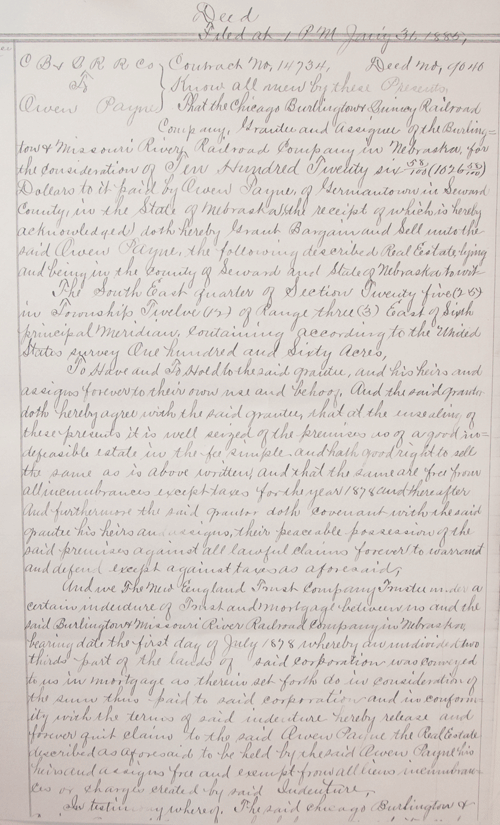 Deed
Filed at 1 P.M. Jany 31, 1885,
C B & Q R R Co } Contract No, 14734, Deed No, 9040
To } Know all men by these Presents
Owen Payne } That the Chicago Burlington & Quincy Railroad
Company, Grantee and Assignee of the Burling=
ton & Missouri River Railroad Company in Nebraska, for
the consideration of Ten Hundred Twenty six 58/100 (1026 58/100)
Dollars to it paid by Owen Payne, of Germantown in Seward
County, in the State of Nebraska, (the receipt of which is hereby
acknowledged) doth hereby Grant Bargain and Sell unto the
said Owen Payne, the following described Real Estate lying
and being in the County of Seward and State of Nebraska to wit-
The South East quarter of Section Twenty five (25)
in Township Twelve (12) of Range three (3) East of Sixth
principal Meridian, Containing according to the United
States survey One hundred and Sixty Acres,
To Have and To Hold to the said grantee, and his heirs and
assigns forever to their own use and behoof. And the said grantor
doth hereby agree with the said grantee, that at the ensealing of
these presents it is well seized of the premises as of a good in=
defeasible estate in the fee simple and hath good right to sell
the same as is above written, and that the same are free from
all incumbrances except taxes for the year 1878 and thereafter
And furthermore the said grantor doth covenant with the said
grantee his heirs and assigns, their peaceable possession of the
said premises against all lawful claims forever to warrant
and defend except against taxes as aforesaid,
And we The New England Trust Company Trustee under a
certain indenture of Trust and mortgage between us and the
said Burlington & Missouri River Railroad Company in Nebraska,
bearing date the first day of July 1878 whereby an undivided two
thirds part of the lands of said corporation was conveyed
to us in mortgage as therein set forth do in consideration of
the sum thus paid to said corporation and in conform=
ity with the terms of said indenture hereby release and
forever quit claim to the said Owen Payne the Real Estate
described as aforesaid to be held by the said Owen Payne his
heirs and assigns free and exempt from all liens incumbran=
ces or charges created by said Indenture,
In testimony whereof, The said Chicago Burlington &